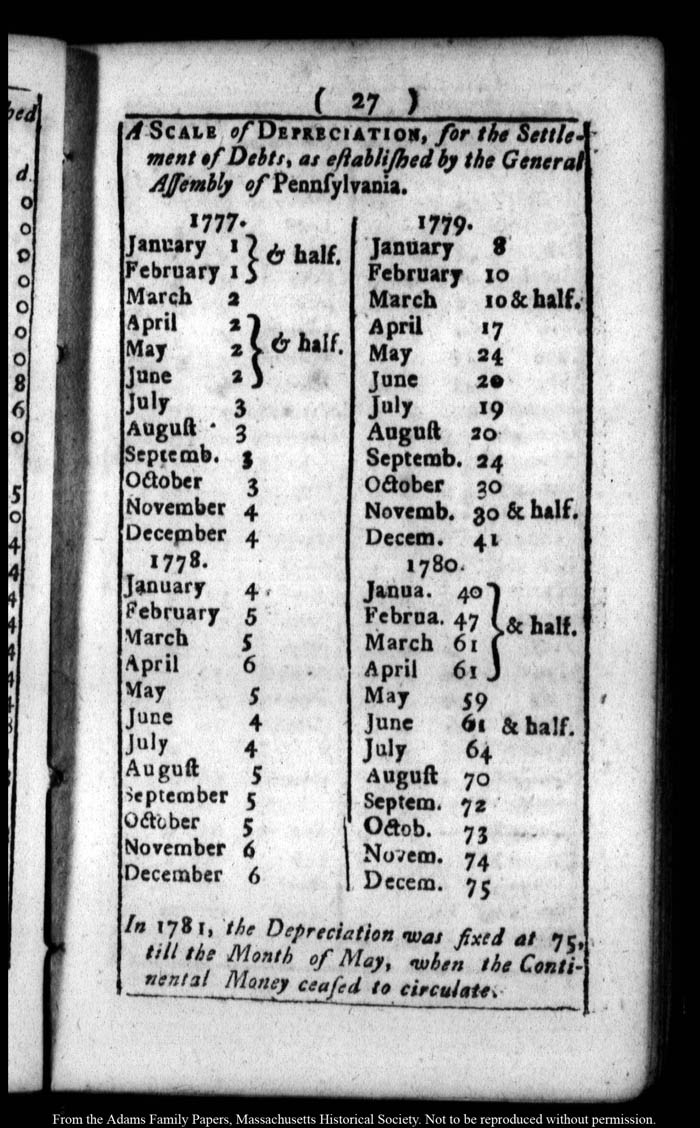 hed
d.
0
0
0
0
0
0
0
8
6
0
5
0
4
4
4
4
4
4
( 27 )
A SCALE of DEPRECIATION, for the Settle-
ment of Debts, as eſtabliſhed by the General
Aſſembly of Pennſylvania.
1777.
January 1
& half.
February 1
March 2
April 2
May 2
& half.
June 2
July 3
Auguſt 3
Septemb. 3
October 3
November 4
December 4
1778.
January 4
February 5
March 5
April 6
May 5
June 4
July 4
Auguſt 5
September 5
October 5
November 6
December 6
1779.
January 8
February 10
March 10 & half.
April 17
May 24
June 20
July 19
Auguſt 20
Septemb. 24
October 30
Novemb. 30 & half.
Decem. 41
1780.
Janua. 40
Februa. 47
& half.
March 61
April 61
May 59
June 61 & half.
July 64
Auguſt 70
Septem. 72
Octob. 73
Novem. 74
Decem. 75
In 1781, the Depreciation was fixed at 75,
till the Month of May, when the Conti-
nental Money ceaſed to circulate.
From the Adams Family Papers, Massachusetts Historical Society. Not to be reproduced without permission.